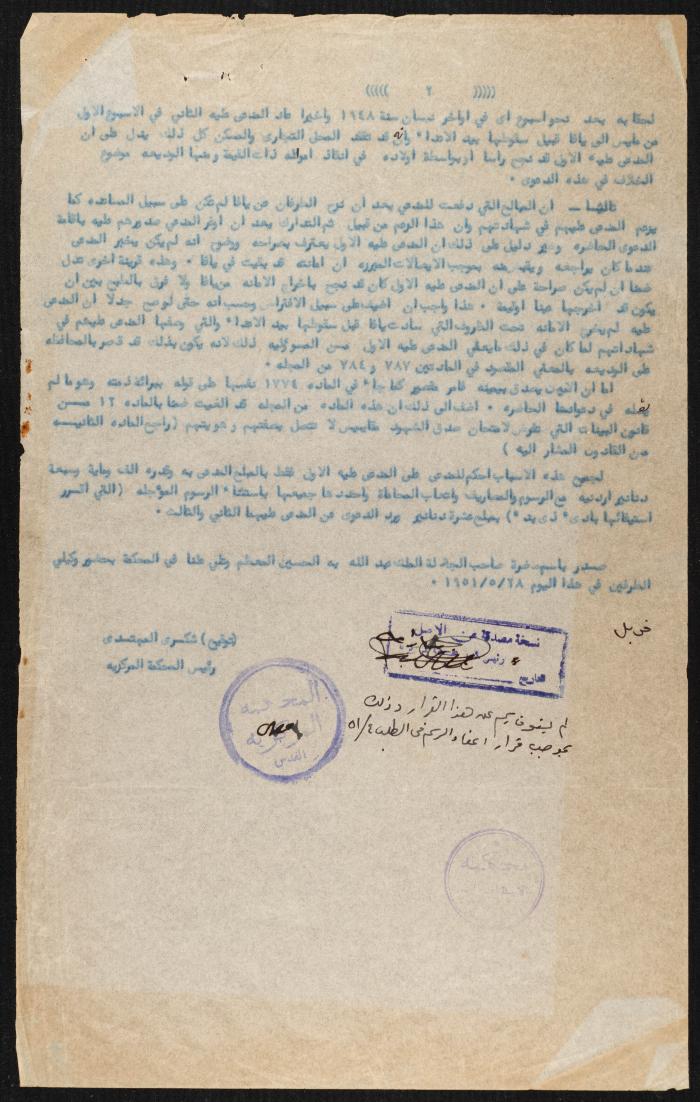 ((((( ٢ )))))
لحقا به بعد نحو اسبوع اى في اواخر نيسان سنة ١٩٤٨ واخيرا عاد المدعى عليه الثاني في الاسبوع الاول
من مايس الى يافا قبيل سقوطها بيد الاعداء وانه قد تفقد المحل التجارى والمسكن كل ذلك يدل على ان
المدعى عليه الاول قد نجح رأسا أو بواسطة اولاده في انقاذ امواله ذات القيمة ومنها الوديعه موضوع
الخلاف في هذه الدعوى .
ثالثا ــ ان المبالغ التي دفعت للمدعي بعد ان نزح الطرفان عن يافا لم تكن على سبيل المساعده كما
يزعم المدعى عليهم في شهاداتهم وان هذا الزعم من قبيل التدارك بعد ان اوغر المدعي صدورهم عليه باقامة
الدعوى الحاضره وخير دليل على ذلك ان المدعى عليه الاول يعترف بصراحه ووضوح انه لم يكن يخبر المدعي
عندما كان يراجعه ويقبضه بموجب الايصالات المبرزه ان امانته قد بقيت في يافا . وهذه قرينة اخرى تدل
ضمنا ان لم يكن صراحة على ان المدعى عليه الاول كان قد نجح باخراج الامانه من يافا ولا فرق بالطبع بين ان
يكون قد اخرجها عينا او قيمة . هذا واجب ان اضيف على سبيل الافتراض وحسب انه حتى لو صح جدلا ان المدعى
عليه لم يخرج الامانه تحت الظروف التي سادت يافا قبل سقوطها بيد الاعداء والتي وصفها المدعى عليهم في
شهاداتهم لما كان في ذلك ما يعفي المدعى عليه الاول من المسؤوليه ذلك لانه يكون بذلك قد قصر بالمحافظه
على الوديعه بالمعنى المقصود في المادتين ٧٨٧ و ٧٨٤ من المجله .
اما ان القول يصدق بيمينه فأمر مقصور كما جاء في الماده ١٧٧٤ نفسها على قوله ببرائة ذمته وهو ما لم
يقله في دعوانا الحاضره . اضف الى ذلك ان هذه الماده من المجله قد الغيت ضمنا بالماده ١٢ من
قانون البينات التي تفرض لامتحان صدق الشهود مقاييس لا تتصل بصفتهم وهويتهم (راجع الماده الثانيه
من القانون المشار اليه )
لجميع هذه الاسباب احكم للمدعي على المدعى عليه الاول فقط بالمبلغ المدعى به وقدره الف وماية وسبعة
دنانير اردنية مع الرسوم والمصاريف واتعاب المحاماة واحددها جميعها باستثناء الرسوم المؤجله (التي اقرر
استيفائها بادىء ذى بدء ) بمبلغ عشرة دنانير برد الدعوى عن المدعى عليهما الثاني والثالث .
صدر باسم حضرة صاحب الجلالة الملك عبد الله بن الحسين المعظم وتلي علنا في المحكمة بحضور وكيلي
الطرفين في هذا اليوم ١٩٥١/٥/٢٨ .
قوبل
(توقيع) شكرى المهتدى
رئيس المحكمة المركزيه
نسخة مصدقة عن الاصل
رئيس
تاريخ
المحكمة
المركزيه
القدس
لم يستوف رسم عن هذا القرار وذلك
بموجب قرار اعفاء الرسم في الطلب ٥١/٤
محكمة